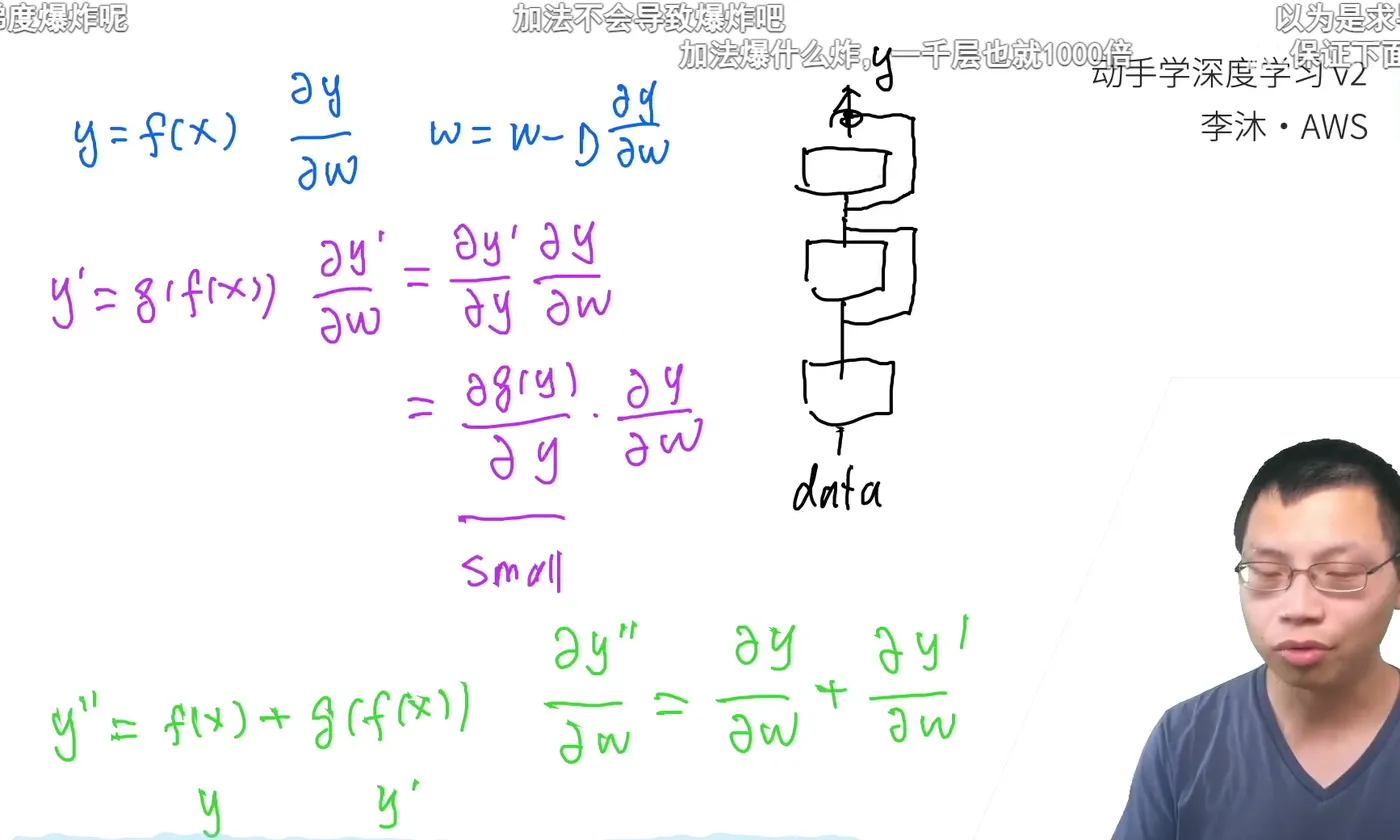 梯度爆炸呢
加法不会导致爆炸吧
以为是求
加法爆什么炸，一千层也就1000倍
保证下面
动手学深度学习 v2
李沐・AWS
y = f(x) ∂y/∂w w = w - η ∂y/∂w
y' = g(f(x)) ∂y'/∂w = ∂y'/∂y ∂y/∂w
= ∂g(y)/∂y · ∂y/∂w
small
y
data
y'' = f(x) + g(f(x)) ∂y''/∂w = ∂y/∂w + ∂y'/∂w
y y'